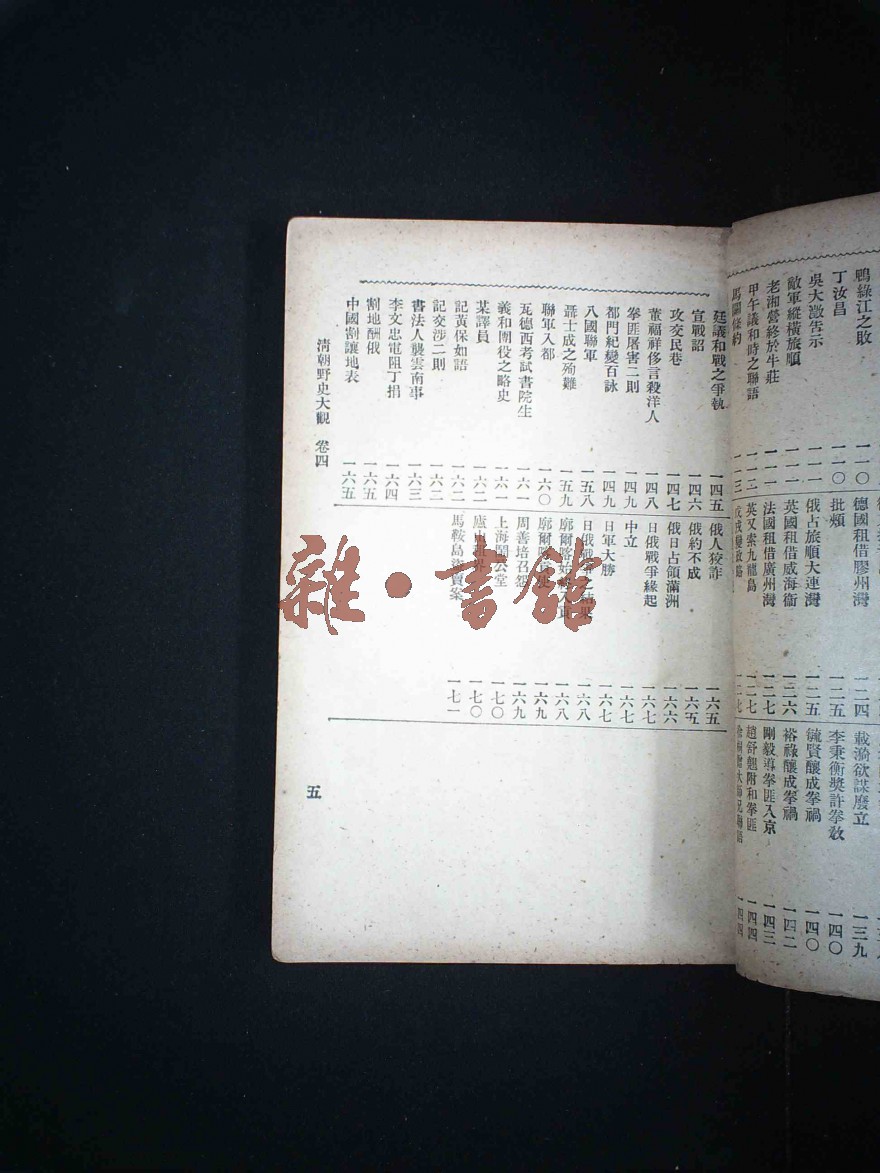 鴨綠江之敗 一一〇
丁汝昌 一一〇
吳大澂告示 一一一
敵軍縱橫旅順 一一一
老湘營終於牛莊 一一一
甲午議和時之聯語 一一二
馬關條約 一一三
德國租借膠州灣 一二四
批頰 一二五
俄占旅順大連灣 一二五
英國租借威海衞 一二六
法國租借廣州灣 一二七
英又索九龍島 一二七
戊戌變政略 一二七
載漪欲謀廢立 一三九
李秉衡獎許拳教 一四〇
毓賢釀成拳禍 一四〇
裕祿釀成拳禍 一四二
剛毅導拳匪入京 一四三
趙舒翹附和拳匪 一四四
一四四
廷議和戰之爭執 一四五
宣戰詔 一四六
攻交民巷 一四七
董福祥侈言殺洋人 一四八
拳匪屠害二則 一四九
都門紀變百詠 一四九
八國聯軍 一五八
聶士成之殉難 一五九
聯軍入都 一六〇
瓦德西考試書院生 一六一
義和團役之略史 一六一
某譯員 一六二
記黃保如語 一六二
記交涉二則 一六二
書法人襲雲南事 一六三
李文忠電阻丁捐 一六四
割地酬俄 一六五
中國割讓地表 一六五
俄人狡詐 一六五
俄約不成 一六五
俄日占領滿洲 一六六
日俄戰爭緣起 一六七
中立 一六七
日軍大勝 一六七
日俄戰爭之結果 一六八
廓爾喀始末 一六八
廓爾喀 一六九
周善培召怨 一六九
上海鬧公堂 一七〇
廬山租界 一七〇
馬鞍島 案 一七一
清朝野史大觀 卷四
五
雜·書館